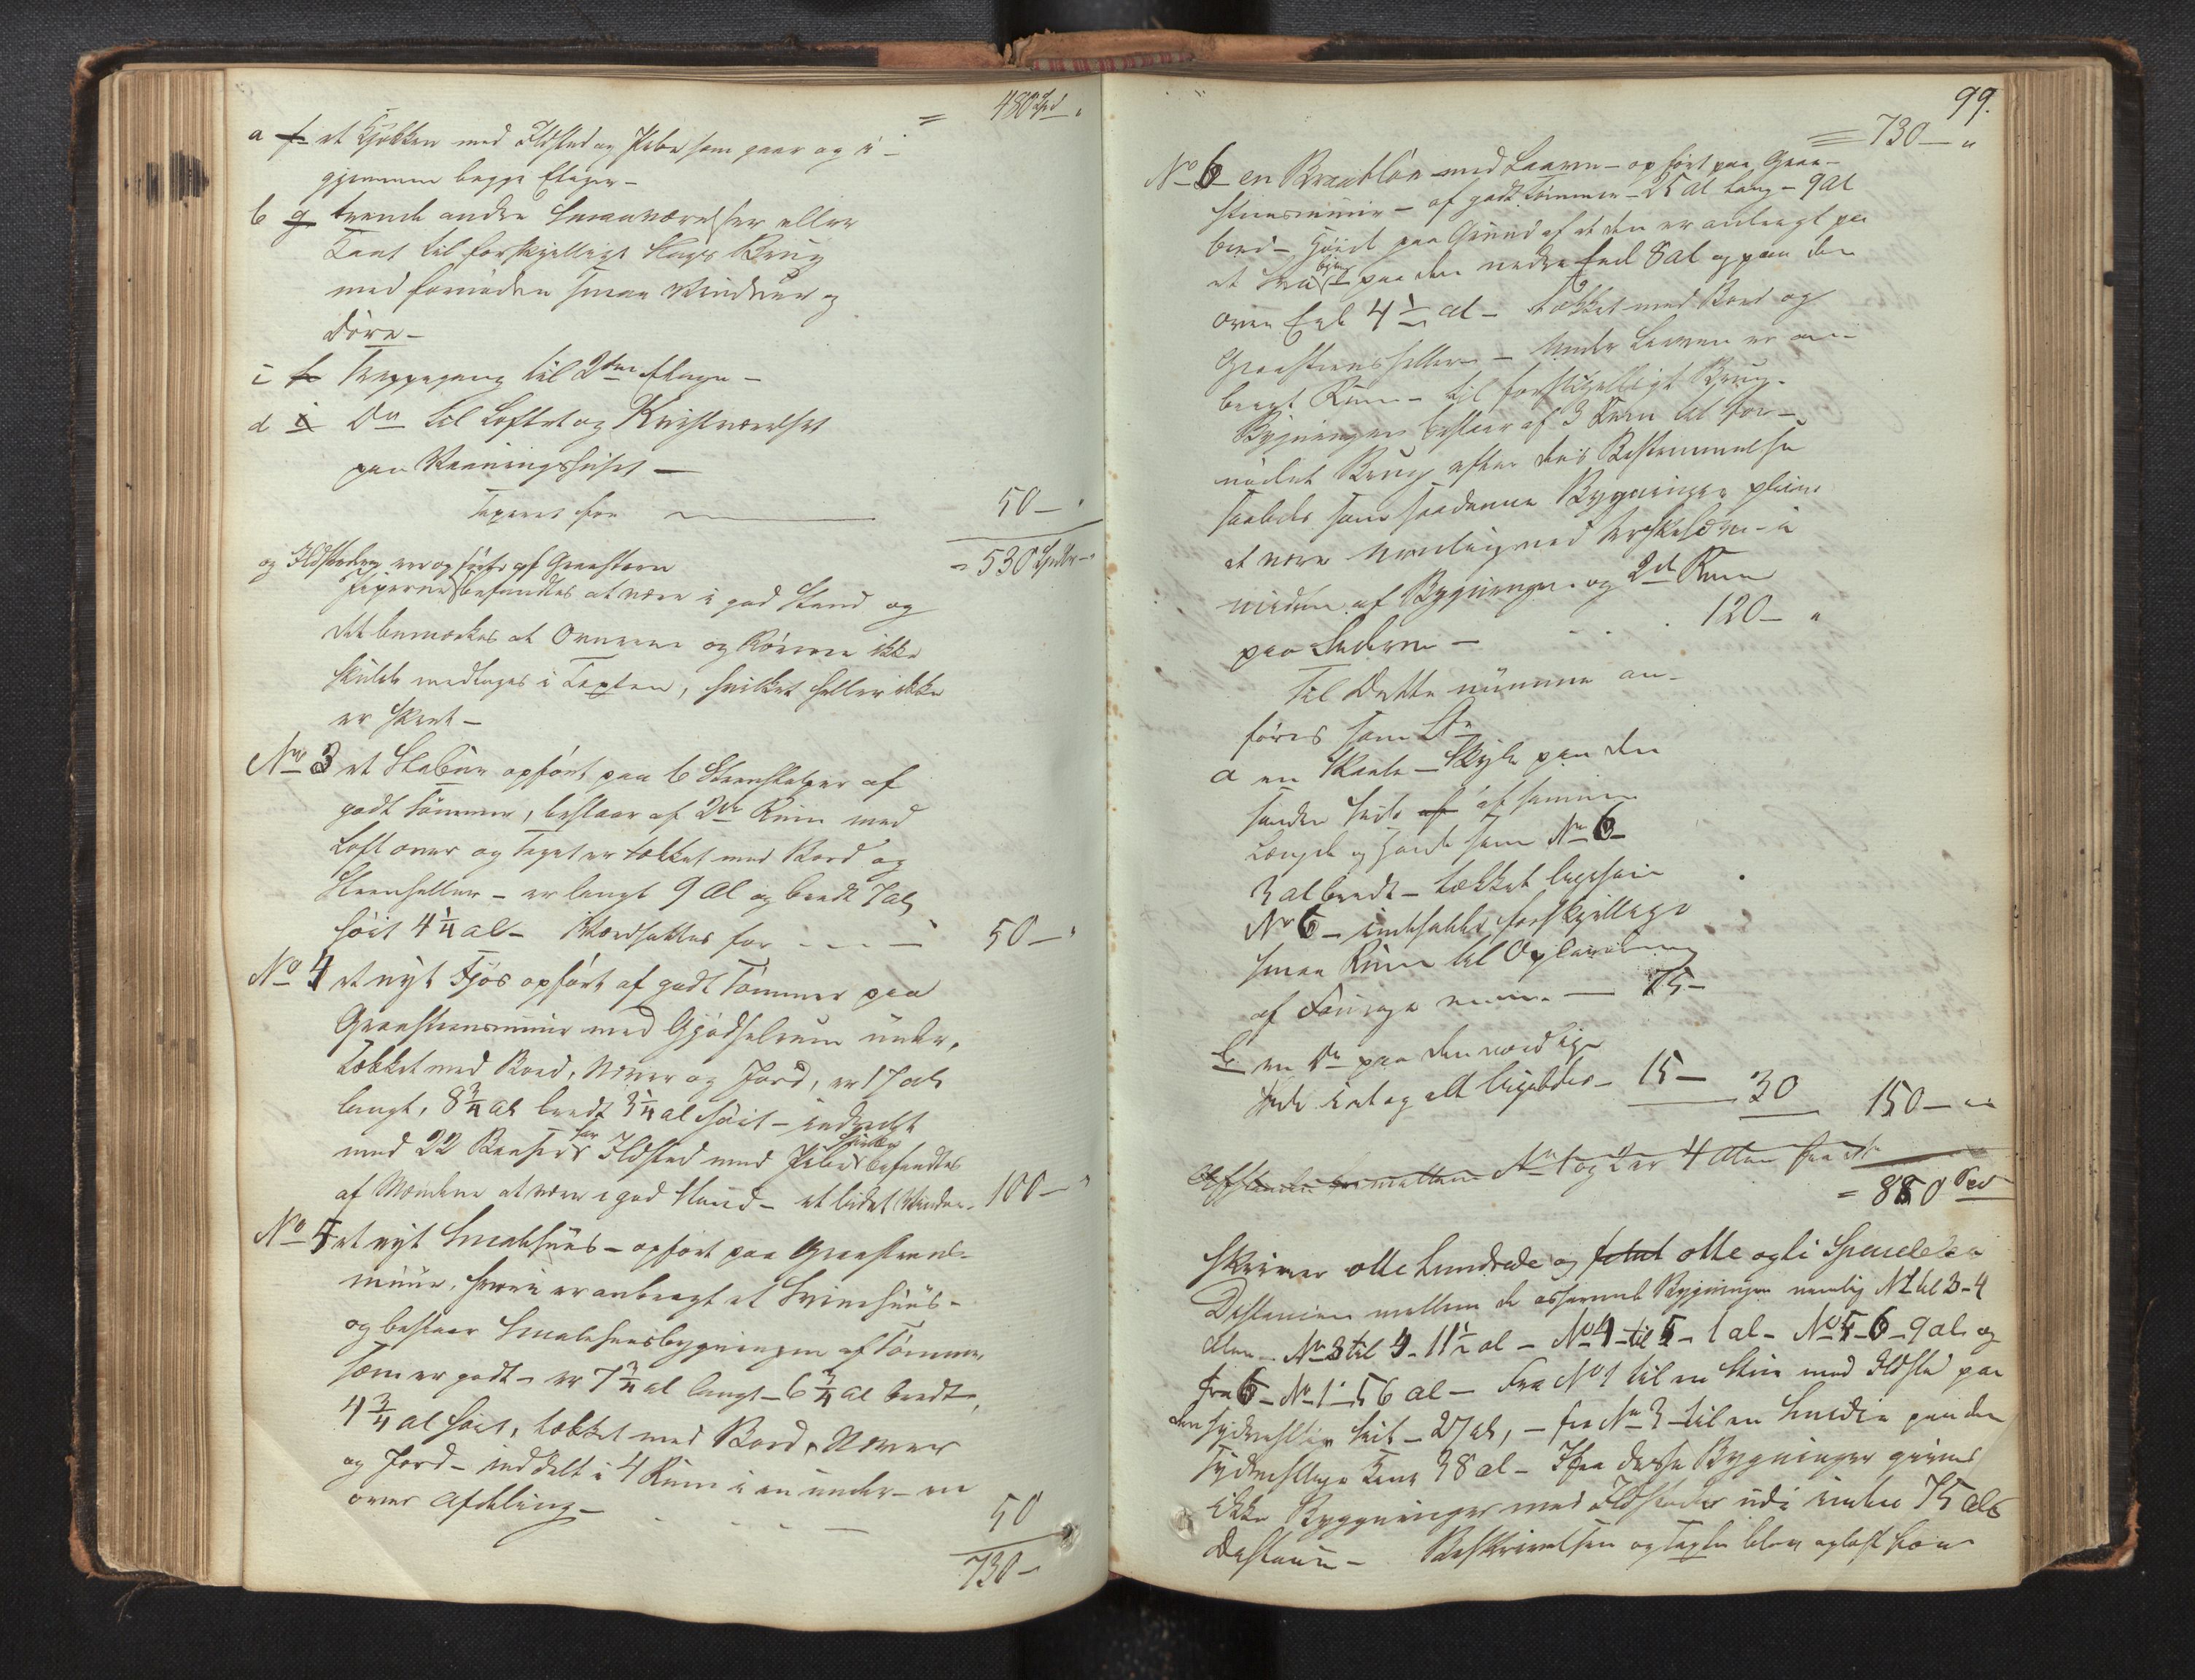 = 480 Spd "
a f et Kjøkken med Ildsted og Pibe som gaar og i-
gjennem begge Etager -
b g trende andre Smaaværelser eller
Rum til forskjelligt Slags Brug
med fornøden smaa Vinduer og
Døre -
c h Trappegang til 2den Etage -
d i Do til Loftet og Kvistværelset
paa Vaaningshuset -
Taxeret for 50 - "
= 530 Spdlr - "
og Ildstederne ere opførte af Graasteen
Piperne befandtes at være i god Stand og
det bemærkes at Ovnene og Rørene ikke
skulde medtages i Taxten, hvilket heller ikke
er skeet -
No 3 et Stabur opført paa 6 Steenstolper af
godt Tømmer, bestaar af 2de Rum med
Loft over og Taget er tækket med Bord og
Steenheller - er langt 9 al og bredt 7 al,
høit 4 1/4 al - Værdsattes for 50 - "
No 4 et nyt Fjøs opført af godt Tømmer paa
Graasteensmuur med Gjødselrum under,
tækket med Bord, Næver og Jord, er 17 al
langt, 8 3/4 al bredt 3 1/4 al høit - indredt
med 22 Baase har Ildsted med Pibe hvilke befandtes
af Mændene at være i god Stand - et lidet Vindue - 100 - "
No 5 et nyt Smalehuus - opført paa Graasteens-
muur, hvori er anbragt et Sviinehuus -
og bestaar Smalehuusbygningen af Tømmer
som er godt - er 7 3/4 al langt - 6 3/4 al bredt,
4 3/4 al høit, tækket med Bord, Næver
og Jord - inddelt i 4 Rum i en under - en
over Afdeling - 50
730 -
99.
= 730 - "
No 6 en Bræatløe med Laave - opført paa Graa-
steensmuur - af godt Tømmer - 25 al lang - 9 al
bred - Høide paa Grund af at den er anlagt paa
et Skraa paa den nedre Ende 8 al og paa den
øvre Ende 4 1/2 al - tækket med Bord og
Graasteensheller - Under Laaven er an-
bragt Rum - til forskjelligt Brug -
Bygningen bestaar af 3 Rum til for-
nødent Brug efter deis Bestemmelse
saaledes som saadanne Bygninger pleie
at være nemlig med Tærskelaave - i
midten af Bygningen og 2de Rum
paa Siderne - 120 - "
Til dette numer an-
føres som Lr
a en Skaale - Skykke paa den
søndre Side af af samme
Længde og Høide som No 6
3 al bredt - tækket ligesom
No 6 - indeholder forskjellige
smaa Rum til Opbevaring
af Fourage 15 -
b en Do paa den nordlige
Side i et og alt ligeledes - 15 - 30 150 - "
Afstanden imellem No 1 og 2 er 4 Alen fra
= 880 Spd
Skriver otte hundrede og otte ogti Speciedaler
Distancen mellem de assurerede Bygninger nemlig No 1 til 3 - 4
Alen - No 3 til 4 - 11 1/2 al - No 4 til 5 - 1 al - No 5 - 6 - 9 al og
fra 6 - No 1 - 56 al - Fra No 1 til en Stue med Ildsted paa
den sydvestlige Side - 27 al, - fra No 3 til en Smedie paa den
sydvestlige Kant 38 al - Ifra disse Bygninger gives
ikke Bygninger med Ildsteder udi inden 75 al
Distance - Beskrivelsen og Taxten blev oplæst for